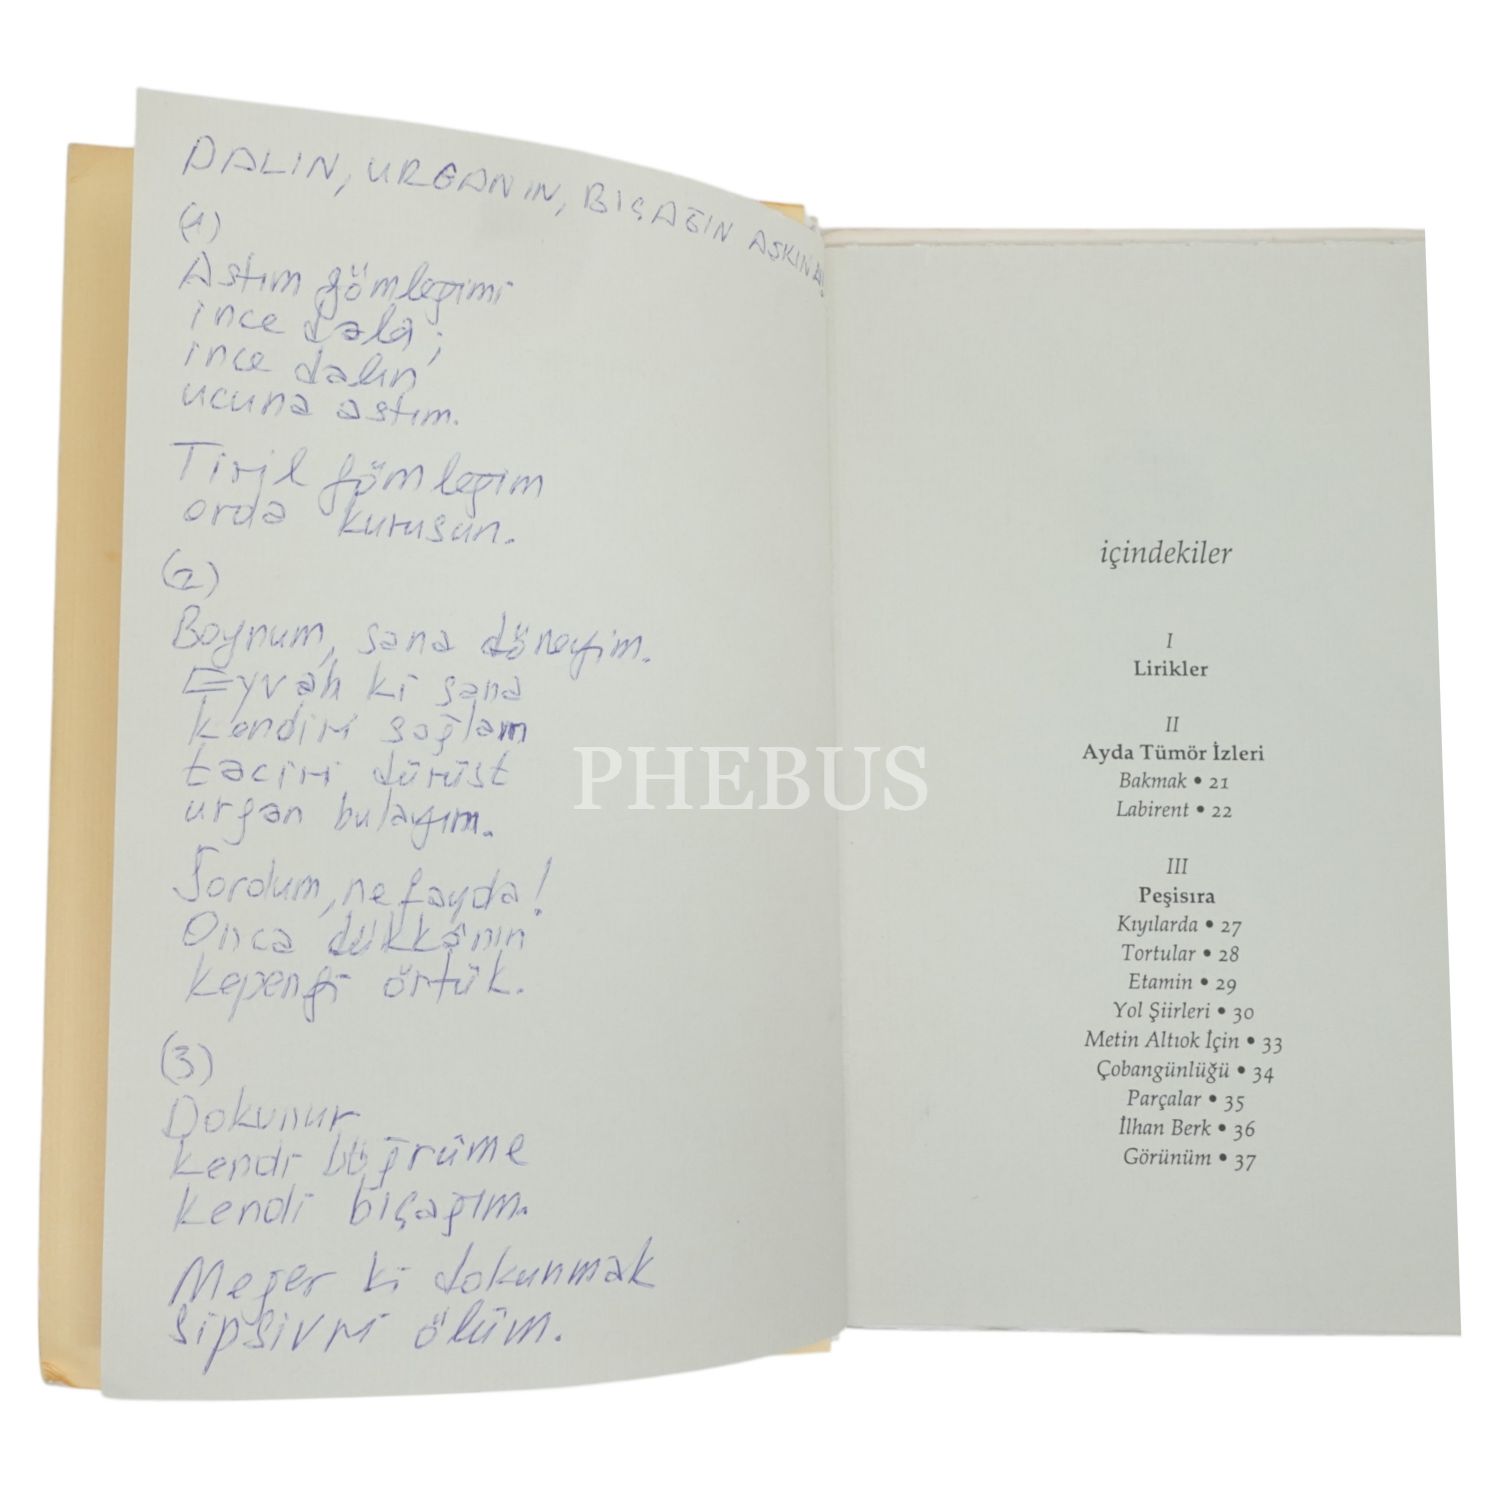 DALIN, URGANIN, BIÇAĞIN AŞKINA!
(1)
Astım gömleğimi
ince dala;
ince dalın
ucuna astım.
Tiril gömleğim
orda kurusun.
(2)
Boynum, sana döneyim.
Eyvah ki sana
kendiri sağlam
taciri dürüst
urgan bulayım.
Sordum, ne fayda!
Onca dükkânın
kepengi örtük.
(3)
Dokunur
kendi böğrüme
kendi bıçağım.
Meğer ki dokunmak
sipsivri ölüm.
PHEBUS
içindekiler
I
Lirikler
II
Ayda Tümör İzleri
Bakmak • 21
Labirent • 22
III
Peşisıra
Kıyılarda • 27
Tortular • 28
Etamin • 29
Yol Şiirleri • 30
Metin Altıok İçin • 33
Çobangünlüğü • 34
Parçalar • 35
İlhan Berk • 36
Görünüm • 37